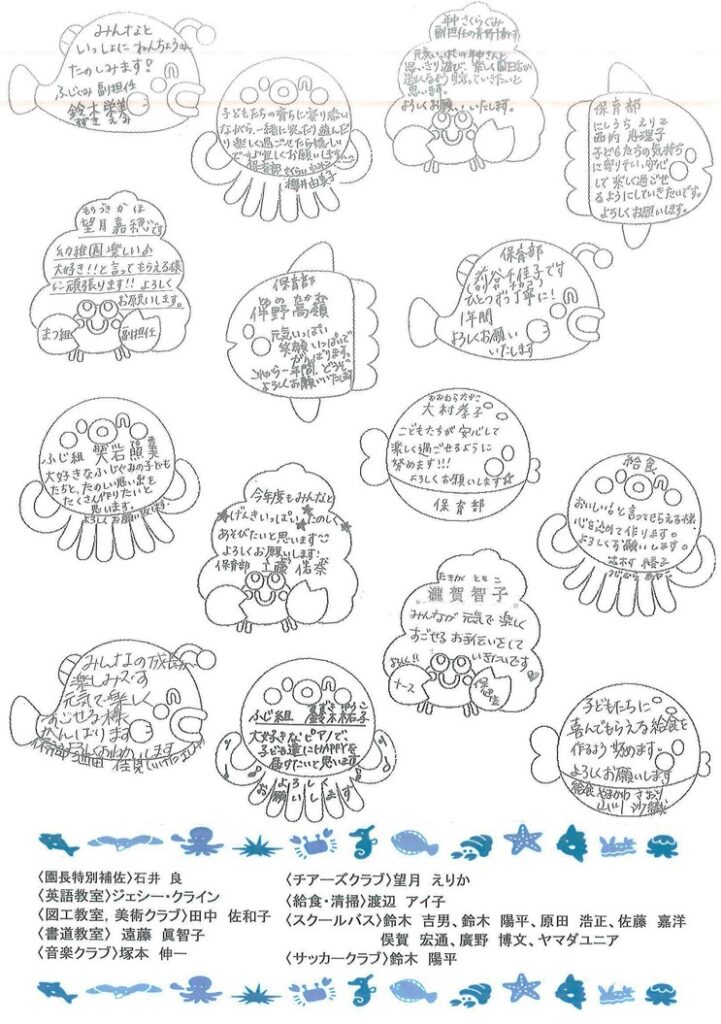 みんなと
いっしょに
たのしみます!
ふじぐみ 副担任
鈴木
子どもたちの育ちに寄り添い
ながら、一緒に笑ったり遊んだ
り楽しく過ごせたら嬉しい
です♪宜しくお願いします
保育部
櫻井由美子
年中 さくらぐみ
副担任の青野
元気いっぱいの年中さんと
思いきり遊び、楽しく
思います。
よろしくお願いいたします。
保育部
にしうち えりこ
西内 恵理子
子どもたちの気持ち
に寄りそい、安心
して楽しく過ごせ
るようにしていきたいです。
よろしくお願いします。
もちづき かほ
望月 嘉穂です
幼稚園楽しい♪
大好き!!と言ってもらえる様
に頑張ります!!よろしく
お願いします。
まつ組
副担任
保育部
伴野 高嶺
元気いっぱい
笑顔いっぱいで
がんばります。
これから一年間、どうぞ
よろしくお願いいたします
保育部
千佳子です
ひとつずつ丁寧に!
1年間
よろしくお願い
いたします
ふじ組 大石照美
大好きなふじぐみの子ども
たちと、たのしい思い出を
たくさん作りたいと
思います。
よろしくお願い致します。
おおむらたかこ
大村孝子
こどもたちが安心して
楽しく過ごせるように
努めます!!!
よろしくお願いします☆
保育部
今年度もみんなと
★げんきいっぱい★たのしく★
あそびたいと思います
よろしくお願いします!
保育部 工藤
給食
おいしい!と言ってもらえる様、
心を込めて作ります。
よろしくお願いします。
たきが ともこ
瀧賀智子
みんなが元気で楽しく
すごせるお手伝いをして
いきたいです
よろしく!!
ナース
みんなの成長が
楽しみです
元気で楽しく
すごせる様
がんばります
よろしくおねがいします
保育部 池田 佳見
ふじ組 鈴木祐子
大好きなピアノで、
子ども達にHAPPYを
届けたいと思います
よろしく
お願いします
子どもたちに
喜んでもらえる給食を
作るよう努めます。
よろしくお願いします
給食 やまかわ さおり
山川 沙織
〈園長特別補佐〉石井 良
〈英語教室〉ジェシー・クライン
〈図工教室, 美術クラブ〉田中 佐和子
〈書道教室〉 遠藤 眞智子
〈音楽クラブ〉塚本 伸一
〈チアーズクラブ〉望月 えりか
〈給食・清掃〉渡辺 アイ子
〈スクールバス〉鈴木 吉男、鈴木 陽平、原田 浩正、佐藤 嘉洋
俣賀 宏通、廣野 博文、ヤマダユニア
〈サッカークラブ〉鈴木 陽平